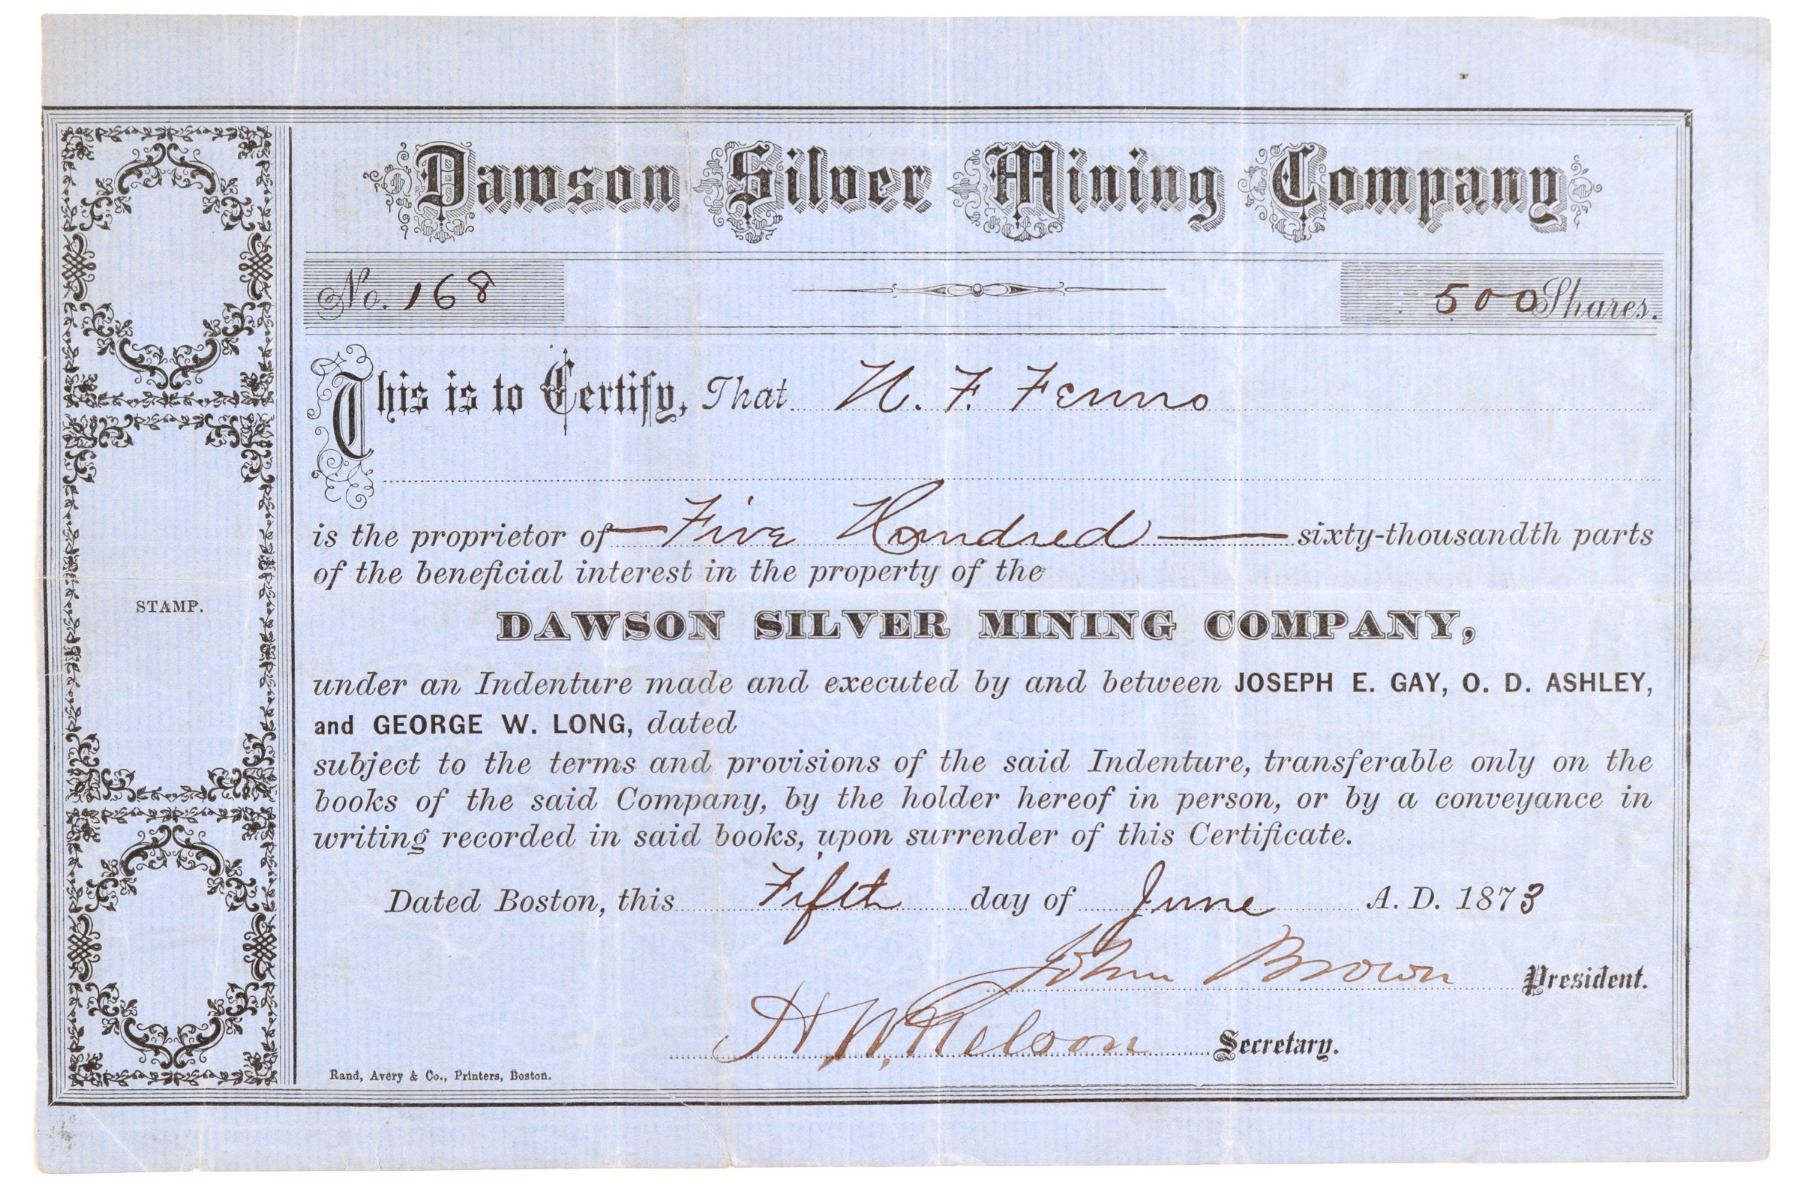 Dawson Silver Mining Company
No. 168
500 Shares.
This is to Certify, That N. F. Fenno
is the proprietor of Five Hundred sixty-thousandth parts
of the beneficial interest in the property of the
DAWSON SILVER MINING COMPANY,
under an Indenture made and executed by and between JOSEPH E. GAY, O. D. ASHLEY,
and GEORGE W. LONG, dated
subject to the terms and provisions of the said Indenture, transferable only on the
books of the said Company, by the holder hereof in person, or by a conveyance in
writing recorded in said books, upon surrender of this Certificate.
Dated Boston, this Fifth day of June A. D. 1873
John Brown President.
H. W. Nelson Secretary.
Rand, Avery & Co., Printers, Boston.
STAMP.